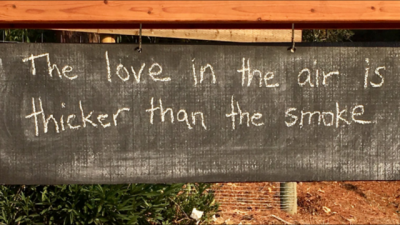 The love in the air is
thicker than the smoke